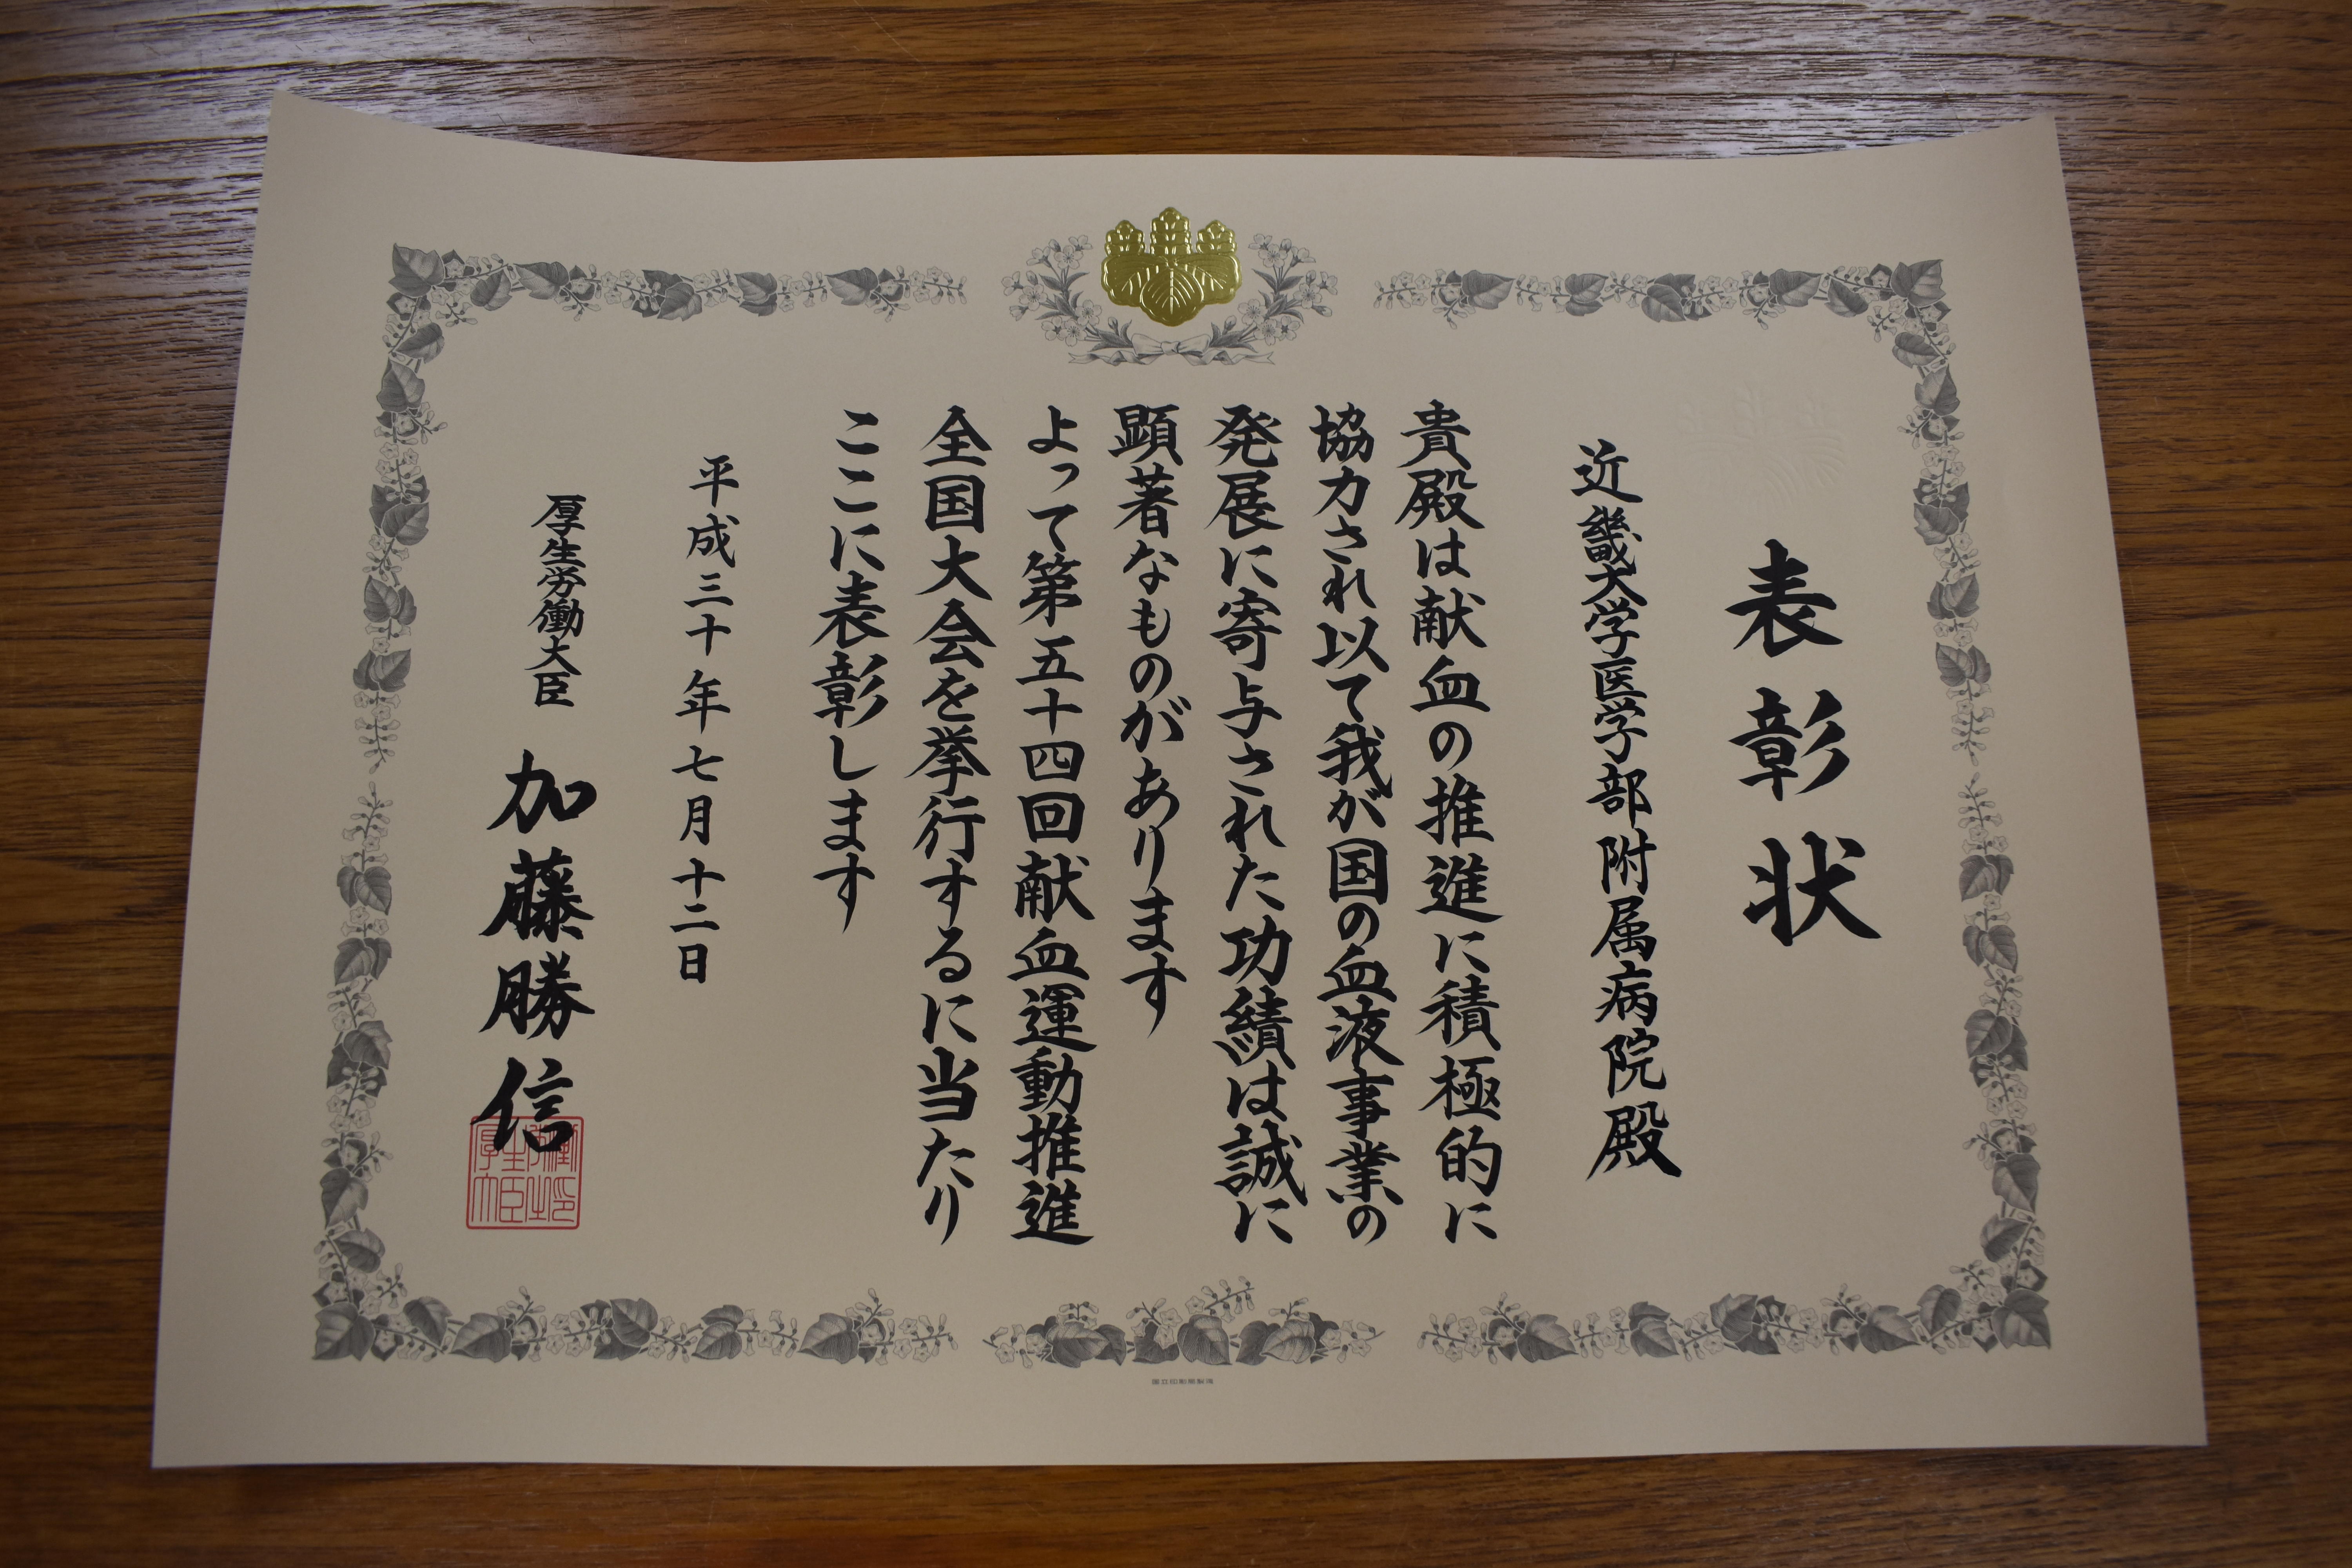 表彰状
近畿大学医学部附属病院殿
貴殿は献血の推進に積極的に
協力され以て我が国の血液事業の
発展に寄与された功績は誠に
顕著なものがあります
よって第五十四回献血運動推進
全国大会を挙行するに当たり
ここに表彰します
平成三十年七月十二日
厚生労働大臣 加藤勝信